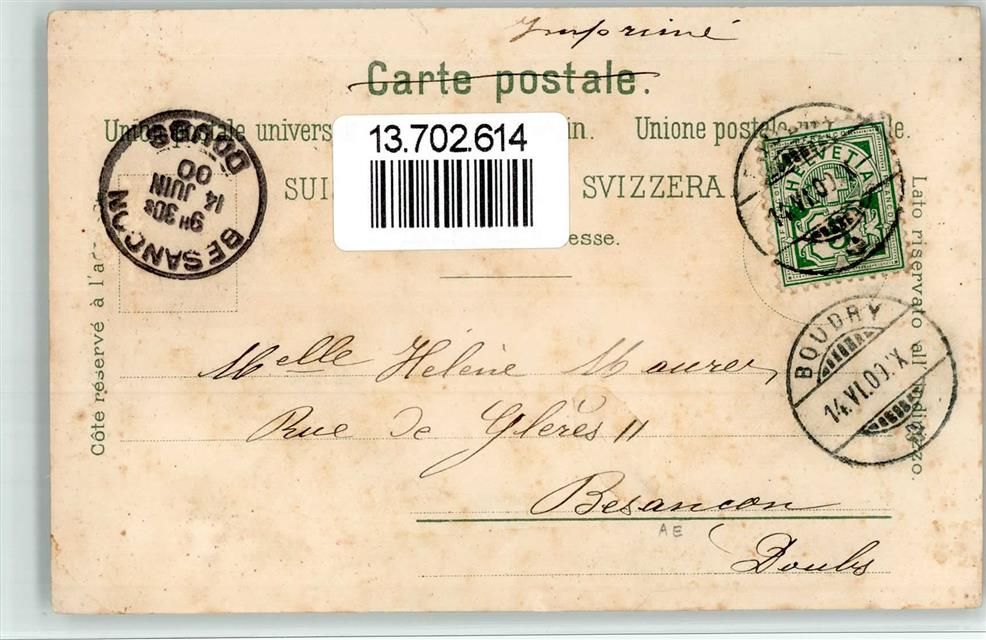 Imprimé
Carte postale.
Union postale univers in. Unione postale le.
13.702.614
SUI SVIZZERA
esse.
Côte réservé à l'a
Lato riservato all' indirizzo.
BESANÇON
9H 30S
14
JUIN
00
DOUBS
HELVETIA
5
14.VI.00.X
BOUDRY
14.VI.00.X
Melle Hélène Maurer
Rue de Glères 11
Besançon
AE
Doubs